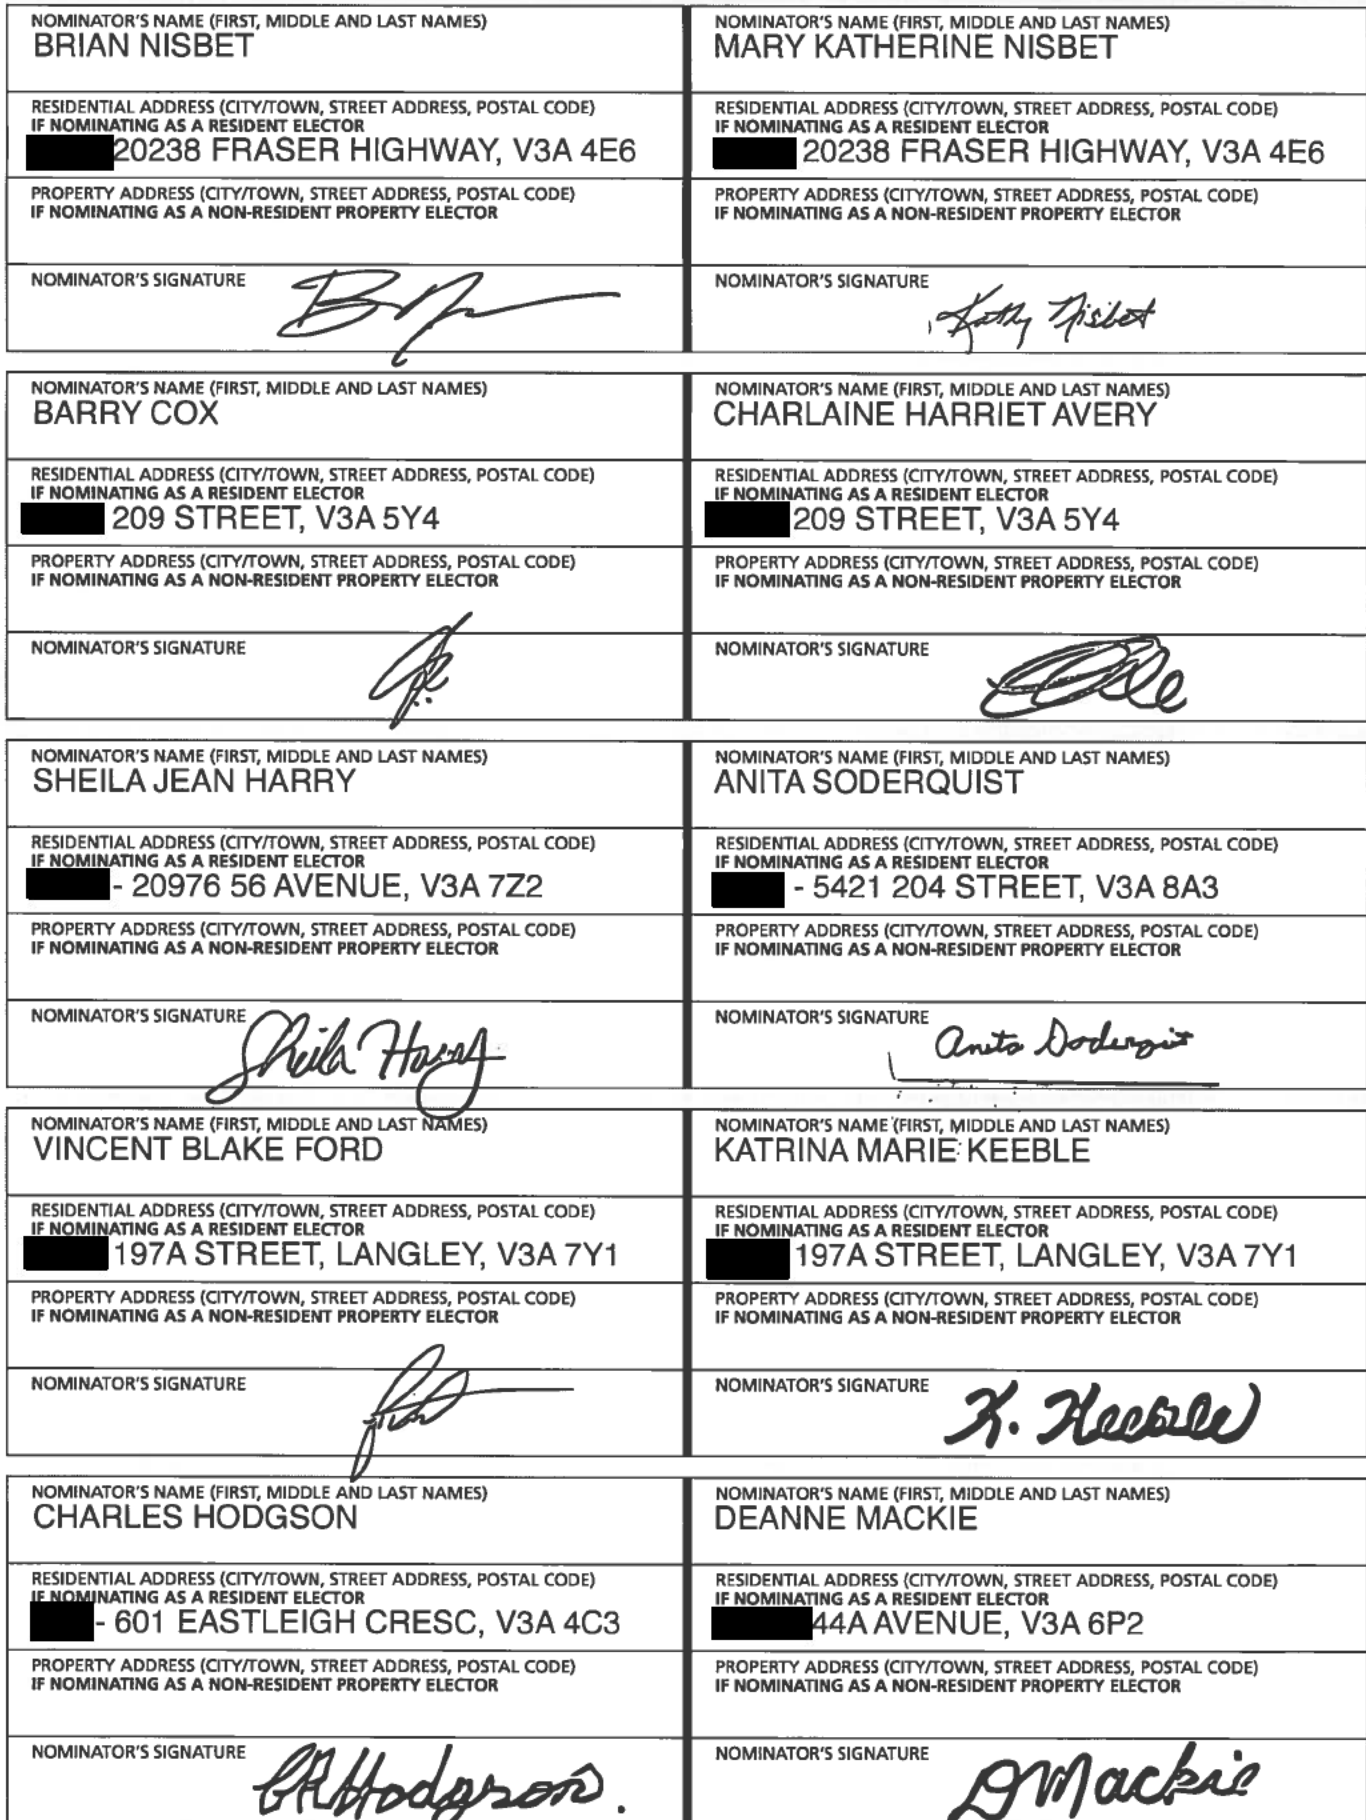 NOMINATOR'S NAME (FIRST, MIDDLE AND LAST NAMES)
BRIAN NISBET
RESIDENTIAL ADDRESS (CITY/TOWN, STREET ADDRESS, POSTAL CODE)
IF NOMINATING AS A RESIDENT ELECTOR
20238 FRASER HIGHWAY, V3A 4E6
PROPERTY ADDRESS (CITY/TOWN, STREET ADDRESS, POSTAL CODE)
IF NOMINATING AS A NON-RESIDENT PROPERTY ELECTOR
NOMINATOR'S SIGNATURE
NOMINATOR'S NAME (FIRST, MIDDLE AND LAST NAMES)
MARY KATHERINE NISBET
RESIDENTIAL ADDRESS (CITY/TOWN, STREET ADDRESS, POSTAL CODE)
IF NOMINATING AS A RESIDENT ELECTOR
20238 FRASER HIGHWAY, V3A 4E6
PROPERTY ADDRESS (CITY/TOWN, STREET ADDRESS, POSTAL CODE)
IF NOMINATING AS A NON-RESIDENT PROPERTY ELECTOR
NOMINATOR'S SIGNATURE Kathy Nisbet
NOMINATOR'S NAME (FIRST, MIDDLE AND LAST NAMES)
BARRY COX
RESIDENTIAL ADDRESS (CITY/TOWN, STREET ADDRESS, POSTAL CODE)
IF NOMINATING AS A RESIDENT ELECTOR
209 STREET, V3A 5Y4
PROPERTY ADDRESS (CITY/TOWN, STREET ADDRESS, POSTAL CODE)
IF NOMINATING AS A NON-RESIDENT PROPERTY ELECTOR
NOMINATOR'S SIGNATURE
NOMINATOR'S NAME (FIRST, MIDDLE AND LAST NAMES)
CHARLAINE HARRIET AVERY
RESIDENTIAL ADDRESS (CITY/TOWN, STREET ADDRESS, POSTAL CODE)
IF NOMINATING AS A RESIDENT ELECTOR
209 STREET, V3A 5Y4
PROPERTY ADDRESS (CITY/TOWN, STREET ADDRESS, POSTAL CODE)
IF NOMINATING AS A NON-RESIDENT PROPERTY ELECTOR
NOMINATOR'S SIGNATURE
NOMINATOR'S NAME (FIRST, MIDDLE AND LAST NAMES)
SHEILA JEAN HARRY
RESIDENTIAL ADDRESS (CITY/TOWN, STREET ADDRESS, POSTAL CODE)
IF NOMINATING AS A RESIDENT ELECTOR
- 20976 56 AVENUE, V3A 7Z2
PROPERTY ADDRESS (CITY/TOWN, STREET ADDRESS, POSTAL CODE)
IF NOMINATING AS A NON-RESIDENT PROPERTY ELECTOR
NOMINATOR'S SIGNATURE Sheila Harry
NOMINATOR'S NAME (FIRST, MIDDLE AND LAST NAMES)
ANITA SODERQUIST
RESIDENTIAL ADDRESS (CITY/TOWN, STREET ADDRESS, POSTAL CODE)
IF NOMINATING AS A RESIDENT ELECTOR
- 5421 204 STREET, V3A 8A3
PROPERTY ADDRESS (CITY/TOWN, STREET ADDRESS, POSTAL CODE)
IF NOMINATING AS A NON-RESIDENT PROPERTY ELECTOR
NOMINATOR'S SIGNATURE Anita
NOMINATOR'S NAME (FIRST, MIDDLE AND LAST NAMES)
VINCENT BLAKE FORD
RESIDENTIAL ADDRESS (CITY/TOWN, STREET ADDRESS, POSTAL CODE)
IF NOMINATING AS A RESIDENT ELECTOR
197A STREET, LANGLEY, V3A 7Y1
PROPERTY ADDRESS (CITY/TOWN, STREET ADDRESS, POSTAL CODE)
IF NOMINATING AS A NON-RESIDENT PROPERTY ELECTOR
NOMINATOR'S SIGNATURE
NOMINATOR'S NAME (FIRST, MIDDLE AND LAST NAMES)
KATRINA MARIE KEEBLE
RESIDENTIAL ADDRESS (CITY/TOWN, STREET ADDRESS, POSTAL CODE)
IF NOMINATING AS A RESIDENT ELECTOR
197A STREET, LANGLEY, V3A 7Y1
PROPERTY ADDRESS (CITY/TOWN, STREET ADDRESS, POSTAL CODE)
IF NOMINATING AS A NON-RESIDENT PROPERTY ELECTOR
NOMINATOR'S SIGNATURE K. Keeble
NOMINATOR'S NAME (FIRST, MIDDLE AND LAST NAMES)
CHARLES HODGSON
RESIDENTIAL ADDRESS (CITY/TOWN, STREET ADDRESS, POSTAL CODE)
IF NOMINATING AS A RESIDENT ELECTOR
- 601 EASTLEIGH CRESC, V3A 4C3
PROPERTY ADDRESS (CITY/TOWN, STREET ADDRESS, POSTAL CODE)
IF NOMINATING AS A NON-RESIDENT PROPERTY ELECTOR
NOMINATOR'S SIGNATURE CR Hodgson.
NOMINATOR'S NAME (FIRST, MIDDLE AND LAST NAMES)
DEANNE MACKIE
RESIDENTIAL ADDRESS (CITY/TOWN, STREET ADDRESS, POSTAL CODE)
IF NOMINATING AS A RESIDENT ELECTOR
44A AVENUE, V3A 6P2
PROPERTY ADDRESS (CITY/TOWN, STREET ADDRESS, POSTAL CODE)
IF NOMINATING AS A NON-RESIDENT PROPERTY ELECTOR
NOMINATOR'S SIGNATURE DMackie